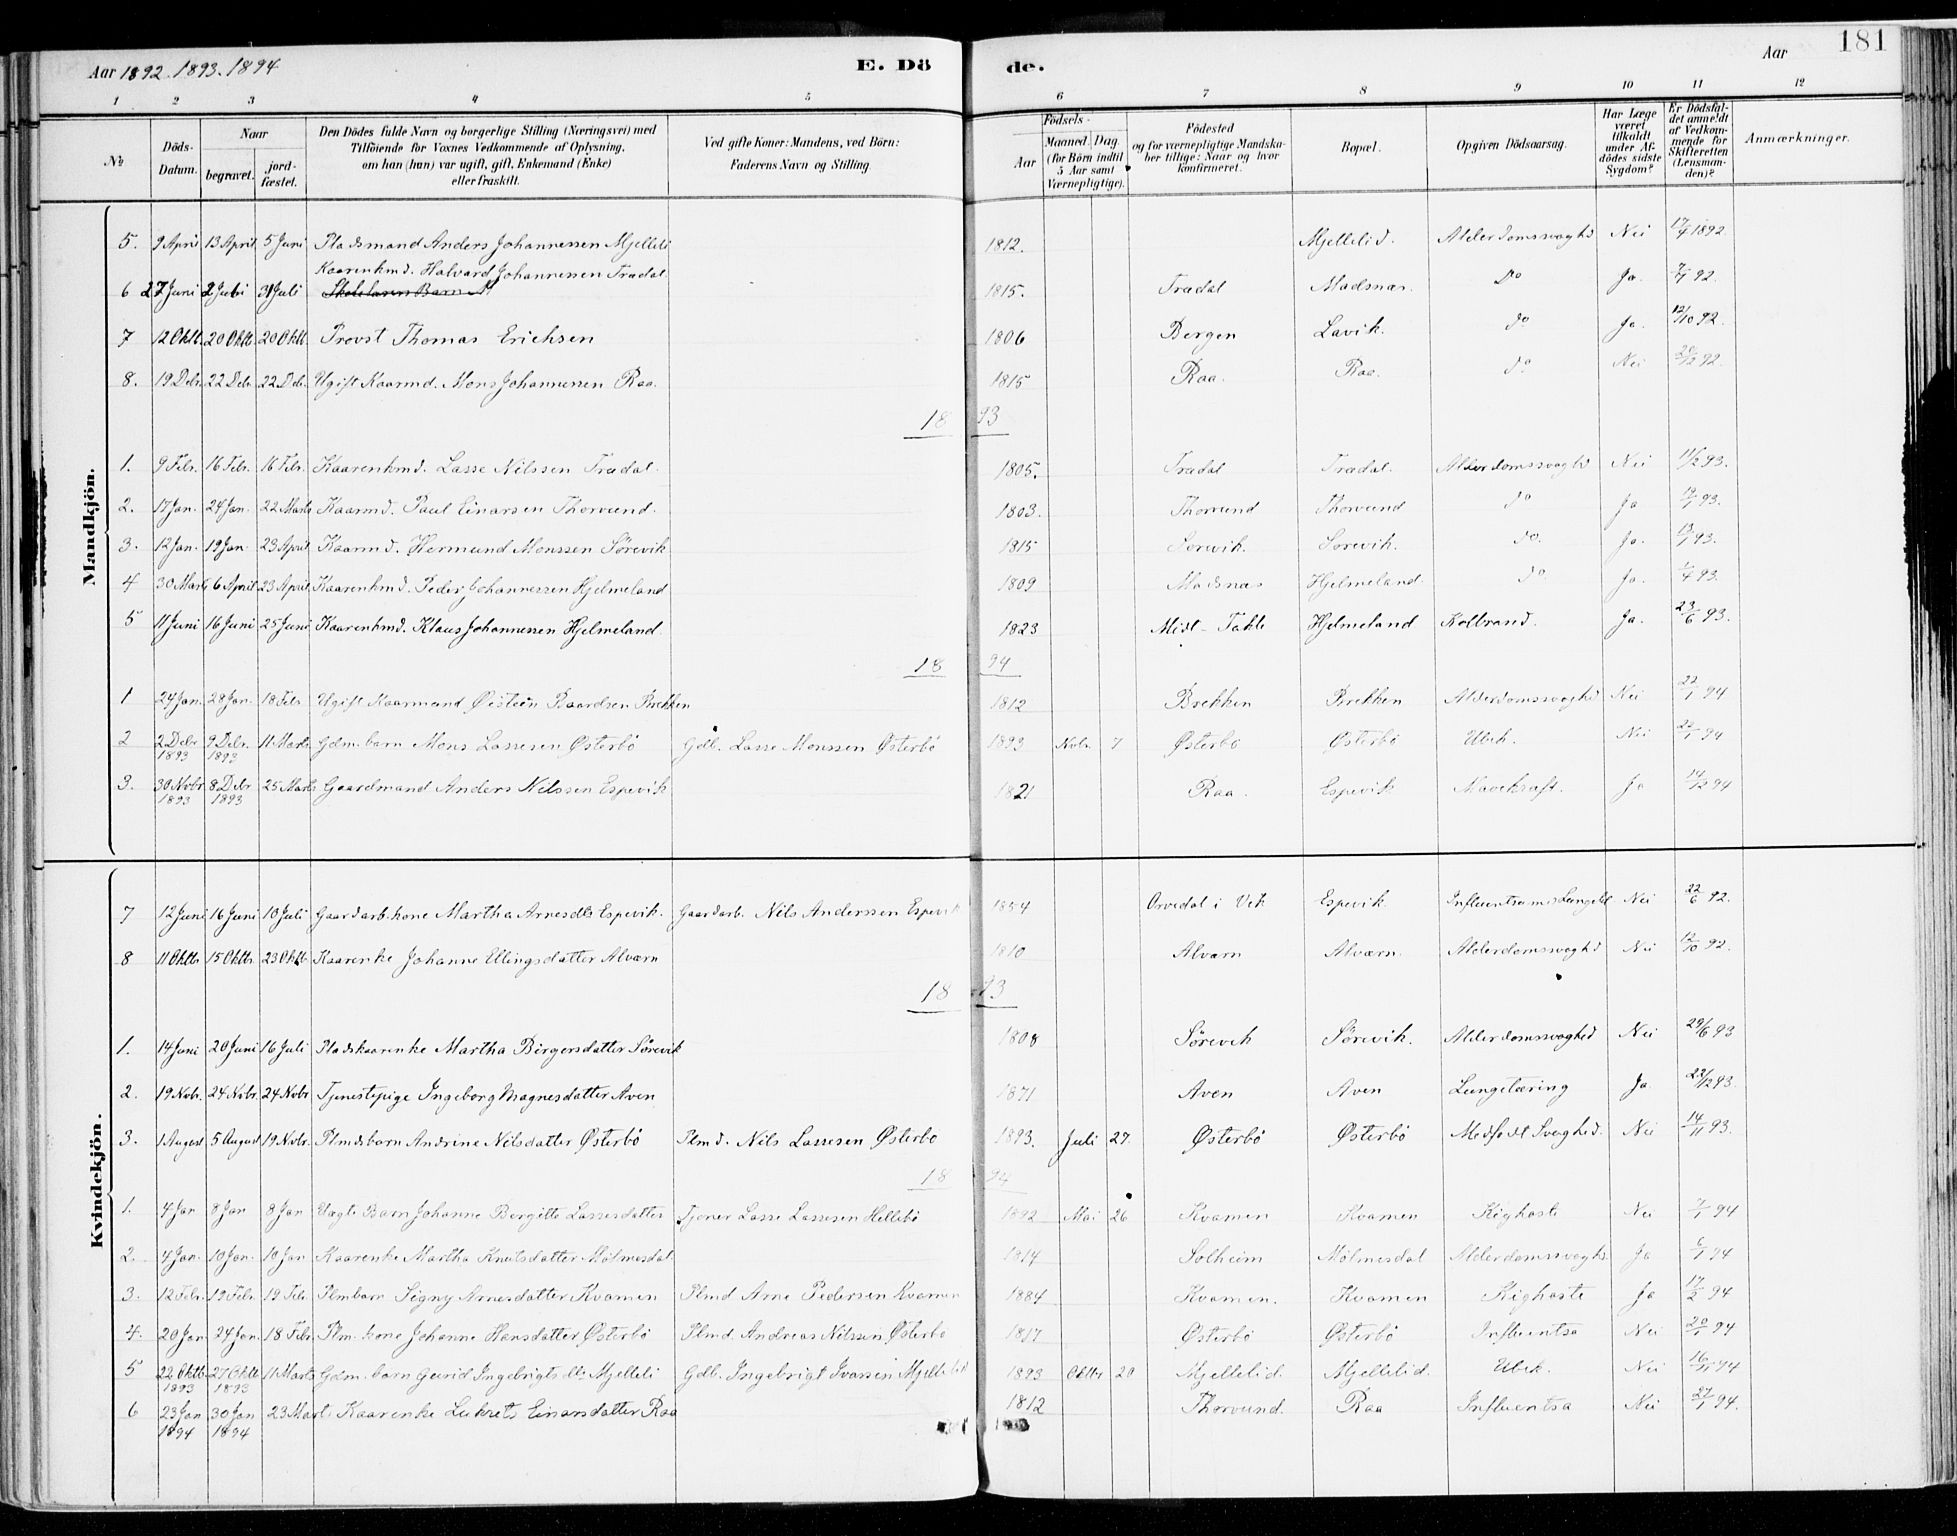 Aar 1892. 1893. 1894 E. Dö de. Aar 181
1 2 3 4 5 6 7 8 9 10 11 12
№ Döds-Datum. Naar begravet. jordfæstet. Den Dödes fulde Navn og borgerlige Stilling (Næringsvei) med Tilföiende for Voxnes Vedkommende af Oplysning, om han (hun) var ugift, gift, Enkemand (Enke) eller fraskilt. Ved gifte Koner: Mandens, ved Börn: Faderens Navn og Stilling. Födsels- Aar Maaned Dag (for Börn indtil 5 Aar samt Værnepligtige). Födested og for værnepligtige Mandskaber tillige: Naar og hvor konfirmeret. Bopæl. Opgiven Dödsaarsag. Har Læge været tilkaldt under Afdödes sidste Sygdom? Er Dödsfaldet anmeldt af Vedkommende for Skifteretten (Lensmanden)? Anmærkninger.
Mandkjön.
5. 9 April 13 April 5 Juni Pladsmand Anders Johannessen Mjelleli 1812. Mjellelid. Alderdomssvaghd Nei 17/4 1892.
6 27 Juni 2 Juli 31 Juli Kaarenkmd. Halvard Johannessen Trædal 1815. Trædal Madsnæs. Do Ja. 7/7 92.
7 12 Oktb. 20 Oktb. 20 Oktb Provst Thomas Erichsen 1806 Bergen Lavik. Do Ja. 12/10 92.
8. 19 Debr. 22 Debr 22 Debr. Ugift Kaarmd. Mons Johannessen Raa. 1815 Raa. Raa. Do Nei 20/12 92.
18 93
1. 9 Febr. 16 Febr. 16 Febr. Kaarenkmd. Lasse Nilssen Trædal. 1805. Trædal Trædal. Alderdomssvaghd Nei 11/2 93.
2. 17 Jan. 24 Jan. 22 Marts Kaarmd. Paul Einarsen Thorvund. 1803. Thorvund Thorvund do Ja 19/1 93.
3. 12 Jan. 19 Jan. 23 April Kaarmd. Hermund Monssen Sörevik 1815 Sorevik. Sorevik. do. Ja. 13/1 93.
4 30 Marts 6 April 23 April Kaarenkmd. Peder Johannessen Hjelmeland 1809 Madsnæs Hjelmeland do Ja. 93.
5 11 Juni 16 Juni 25 Juni Kaarenkmd. Klaus Johannessen Hjelmeland. 1823 Midt-Takle Hjelmeland Kolbrand. Ja. 23/6 93.
18 94
1 24 Jan. 28 Jan. 18 Febr Ugift Kaarmand Øistein Baardsen Brekken 1812 Brekken Brekken Alderdomssvaghed Nei 22/1 94
2 2 Debr 1893 9 Debr. 1893 11 Marts Gdm. barn Mons Lassesen Østerbö Gdb. Lasse Monssen Østerbö 1893 Nobr. 7 Østerbö Østerbö Ubek. Nei 22/1 94
3. 30 Nvbr 1893 8 Debr 1893 25 Marts Gaardmand Anders Nilssen Espevik 1821 Raa. Espevik Mavekræft. Ja 14/12 94
Kvindekjön.
7 12 Juni 16 Juni 10 Juli Gaardarb. kone Martha Arnesdtr Espevik. Gaardarb. Nils Anderssen Espevik 1854 Orvedal i Vik Espevik. Nei 22/6 92.
8 11 Oktb 15 Oktb. 23 Oktb Kaarenke Johanne Ellingsdatter Alværn 1810 Alværn Alværn. Alderdomssvaghd Nei 12/10 92.
18 93
1. 14 Juni 20 Juni 16 Juli Pladskaarenke Martha Birgersdatter Sörevik 1808 Sörevik Sörevik. Alderdomssvaghed Nei 29/6 93
2. 19 Nvbr. 24 Nvbr. 24 Nvbr Tjenestepige Ingeborg Magnesdatter Aven 1871 Aven Aven Lungetæring Ja. 23/12 93.
3. 1 August 5 August 19 Nvbr. Plmdsbarn Andrine Nilsdatter Østerbö Plmd. Nils Lassesen Østerbö 1893. Juli 27. Østerbö Østerbö Medfödt Svaghed. Nei 14/11 93.
18 94
1. 4 Jan 8 Jan 8 Jan Uægte Barn Johanne Bergitte Lassesdatter Tjener Lasse Lassesen Hellebö 1892 Mai 26 Kvamen Kvamen Kighoste Nei 7/1 94
2. 4 Jan. 10 Jan. 10 Jan Kaarenke Martha Knutsdatter Mölmesdal 1814 Solheim Mölmesdal Alderdomssvaghd. Ja 6/1 94
3. 12 Febr. 19 Febr. 19 Febr. Plmbarn Signy Arnesdatter Kvamen Plmd Arne Pedersen Kvamen 1884 Kvamen. Kvamen Kighoste Ja 17/2 94
4. 20 Jan 24 Jan. 18 Febr. Plm. kone Johanne Hansdatter Østerbö Plmd. Andreas Nilssen Østerbö 1817 Østerbö Østerbö Influentsa Nei 20/1 94
5 22 Oktb 1893 27 Oktb 1893 11 Marts Gdm. barn Gurid Ingebrigtsdtr Mjelleli Gdb. Ingebrigt Ivarssen Mjellelid 1893 Oktbr 20 Mjellelid. Mjellelid. Ubek. Nei 94
6 23 Jan 1894 30 Jan 1894 23 Marts Kaarenke Lukrets Einarsdatter Raa 1812 Thorvund. Raa Influentsa Nei 27/1 94.